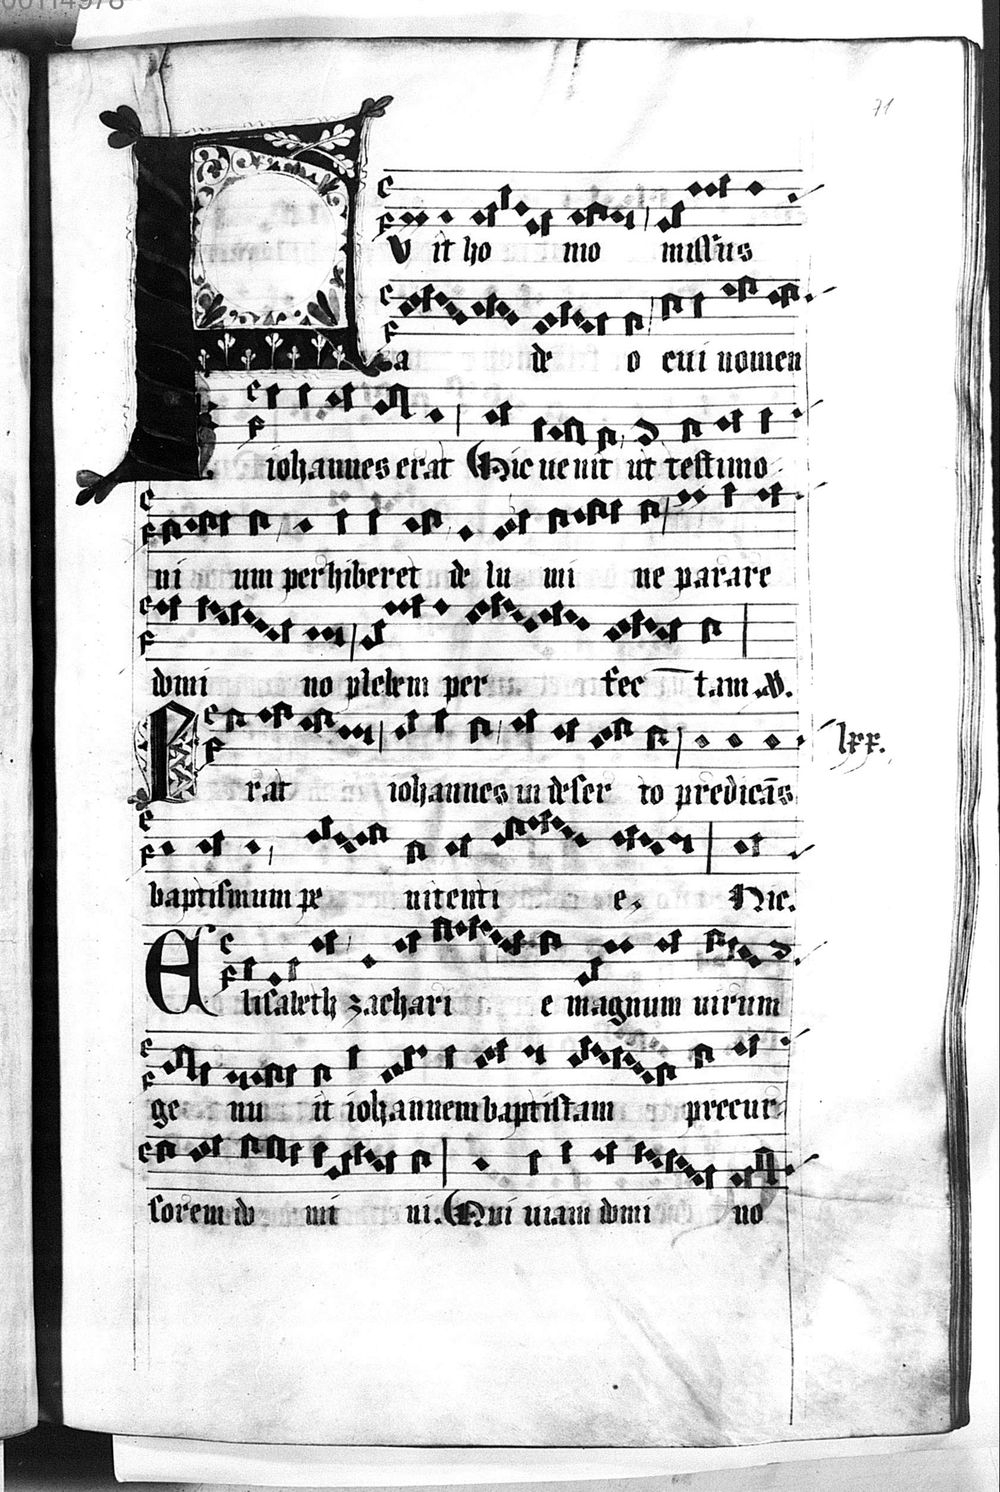 00114978
71
Fvit ho mo missus
a de o cui nomen
iohannes erat Hic uenit ut testimo
ni um perhiberet de lu mi ne parare
domi no plebem per fec tam .V.
lxx.
Erat iohannes in deser to predicās
baptismum pe nitenti e. Hic.
Elisabeth zachari e magnum uirum
ge nu it iohannem baptistam precur
sorem do mi ni. Qui uiam domi no